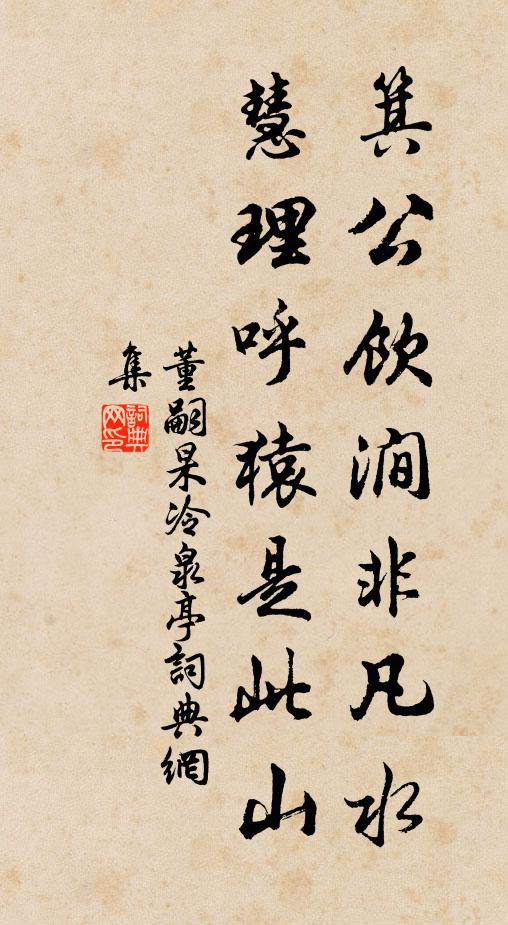 箕公飲澗非凡水
慧理呼猿是此山
董嗣杲冷泉亭詞典網
集
詞典网印